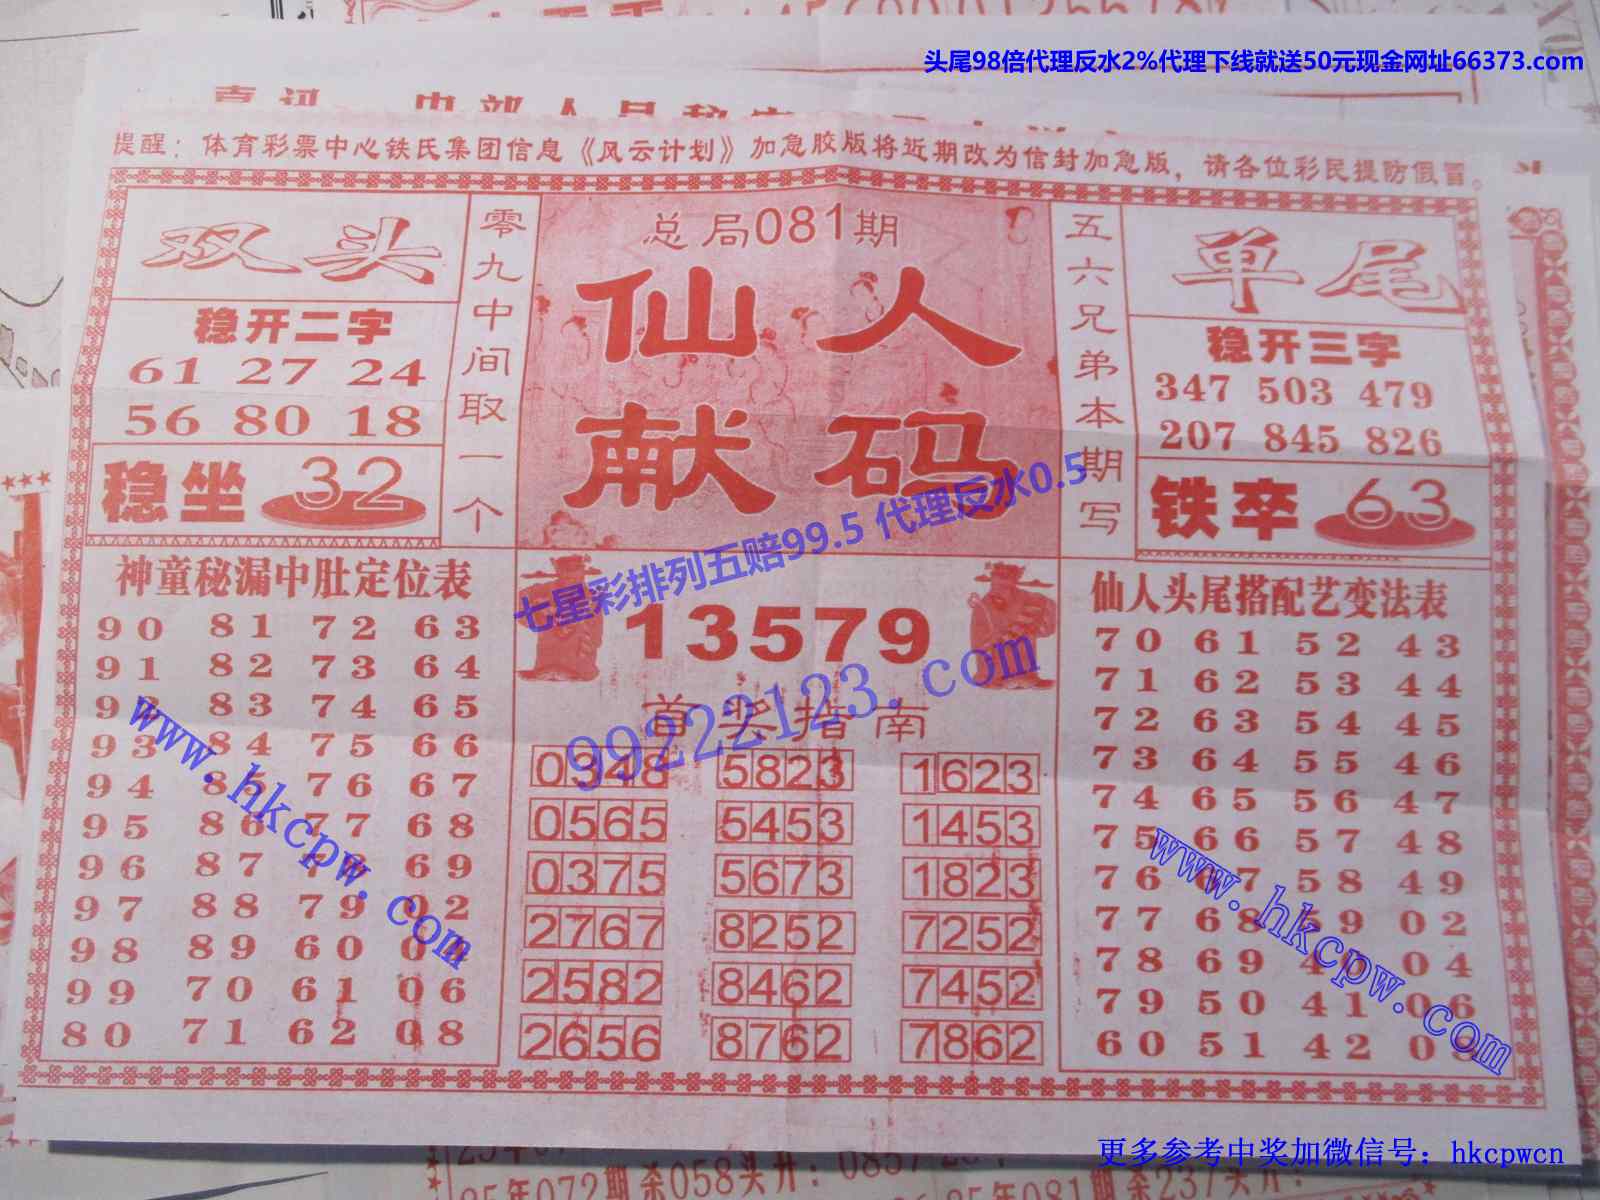 头尾98倍代理反水2%代理下线就送50元现金网址66373.com
提醒：体育彩票中心铁氏集团信息《风云计划》加急胶版将近期改为信封加急版，请各位彩民提防假冒。
双头
稳开二字
61 27 24
56 80 18
稳坐 32
零九中间取一个
总局081期
仙人
献码
五六兄弟本期写
单尾
稳开三字
347 503 479
207 845 826
铁卒 63
七星彩排列五赔99.5 代理反水0.5
99222123.com
神童秘漏中肚定位表
90 81 72 63
91 82 73 64
92 83 74 65
93 84 75 66
94 85 76 67
95 86 77 68
96 87 69
97 88 79 02
98 89 60 04
99 70 61 06
80 71 62 08
www.hkcpw.com
13579
首奖指南
0348 5823 1623
0565 5453 1453
0375 5673 1823
2767 8252 7252
2582 8462 7452
2656 8762 7862
仙人头尾搭配艺变法表
70 61 52 43
71 62 53 44
72 63 54 45
73 64 55 46
74 65 56 47
75 66 57 48
76 67 58 49
77 68 59 02
78 69 40 04
79 50 41 06
60 51 42 08
www.hkcpw.com
更多参考中奖加微信号：hkcpwcn